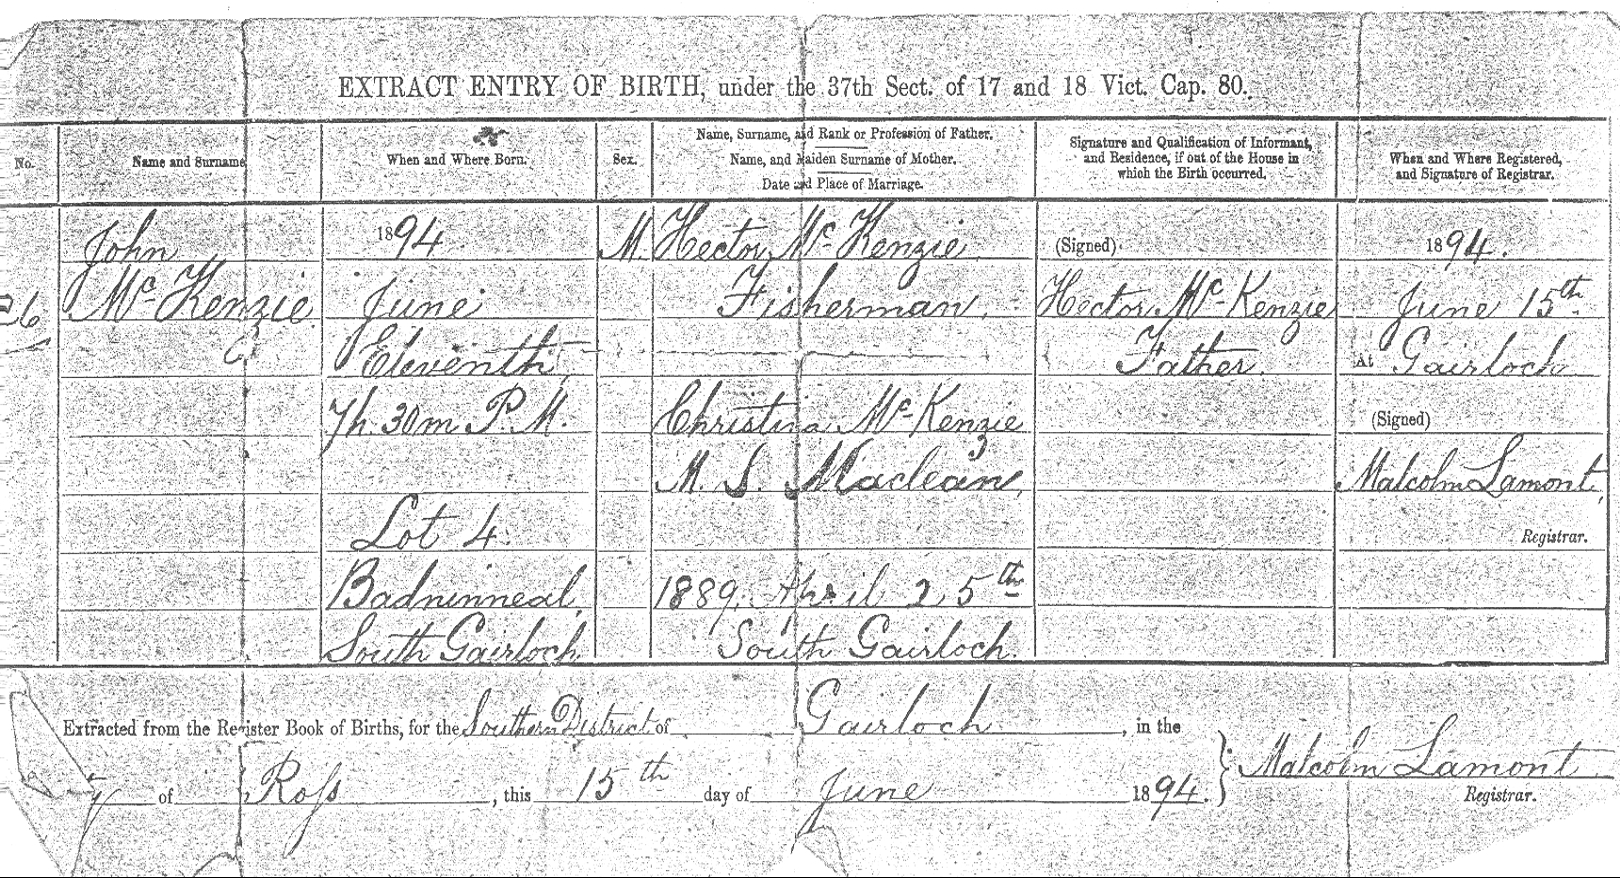 EXTRACT ENTRY OF BIRTH, under the 37th Sect. of 17 and 18 Vict. Cap. 80.
No.
Name and Surname
When and Where Born.
Sex.
Name, Surname, and Rank or Profession of Father.
Name, and Maiden Surname of Mother.
Date and Place of Marriage.
Signature and Qualification of Informant,
and Residence, if out of the House in
which the Birth occurred.
When and Where Registered,
and Signature of Registrar.
26
John
McKenzie
1894
June
Eleventh,
7h. 30m P.M.
Lot 4.
Badninneal,
South Gairloch
M.
Hector McKenzie
Fisherman.
Christina McKenzie
M. S. Maclean,
1889, April 25th
South Gairloch.
(Signed)
Hector McKenzie
Father.
1894.
June 15th
At Gairloch
(Signed)
Malcolm Lamont,
Registrar.
Extracted from the Register Book of Births, for the Southern District of Gairloch, in the
of Ross, this 15th day of June 1894. } Malcolm Lamont
Registrar.